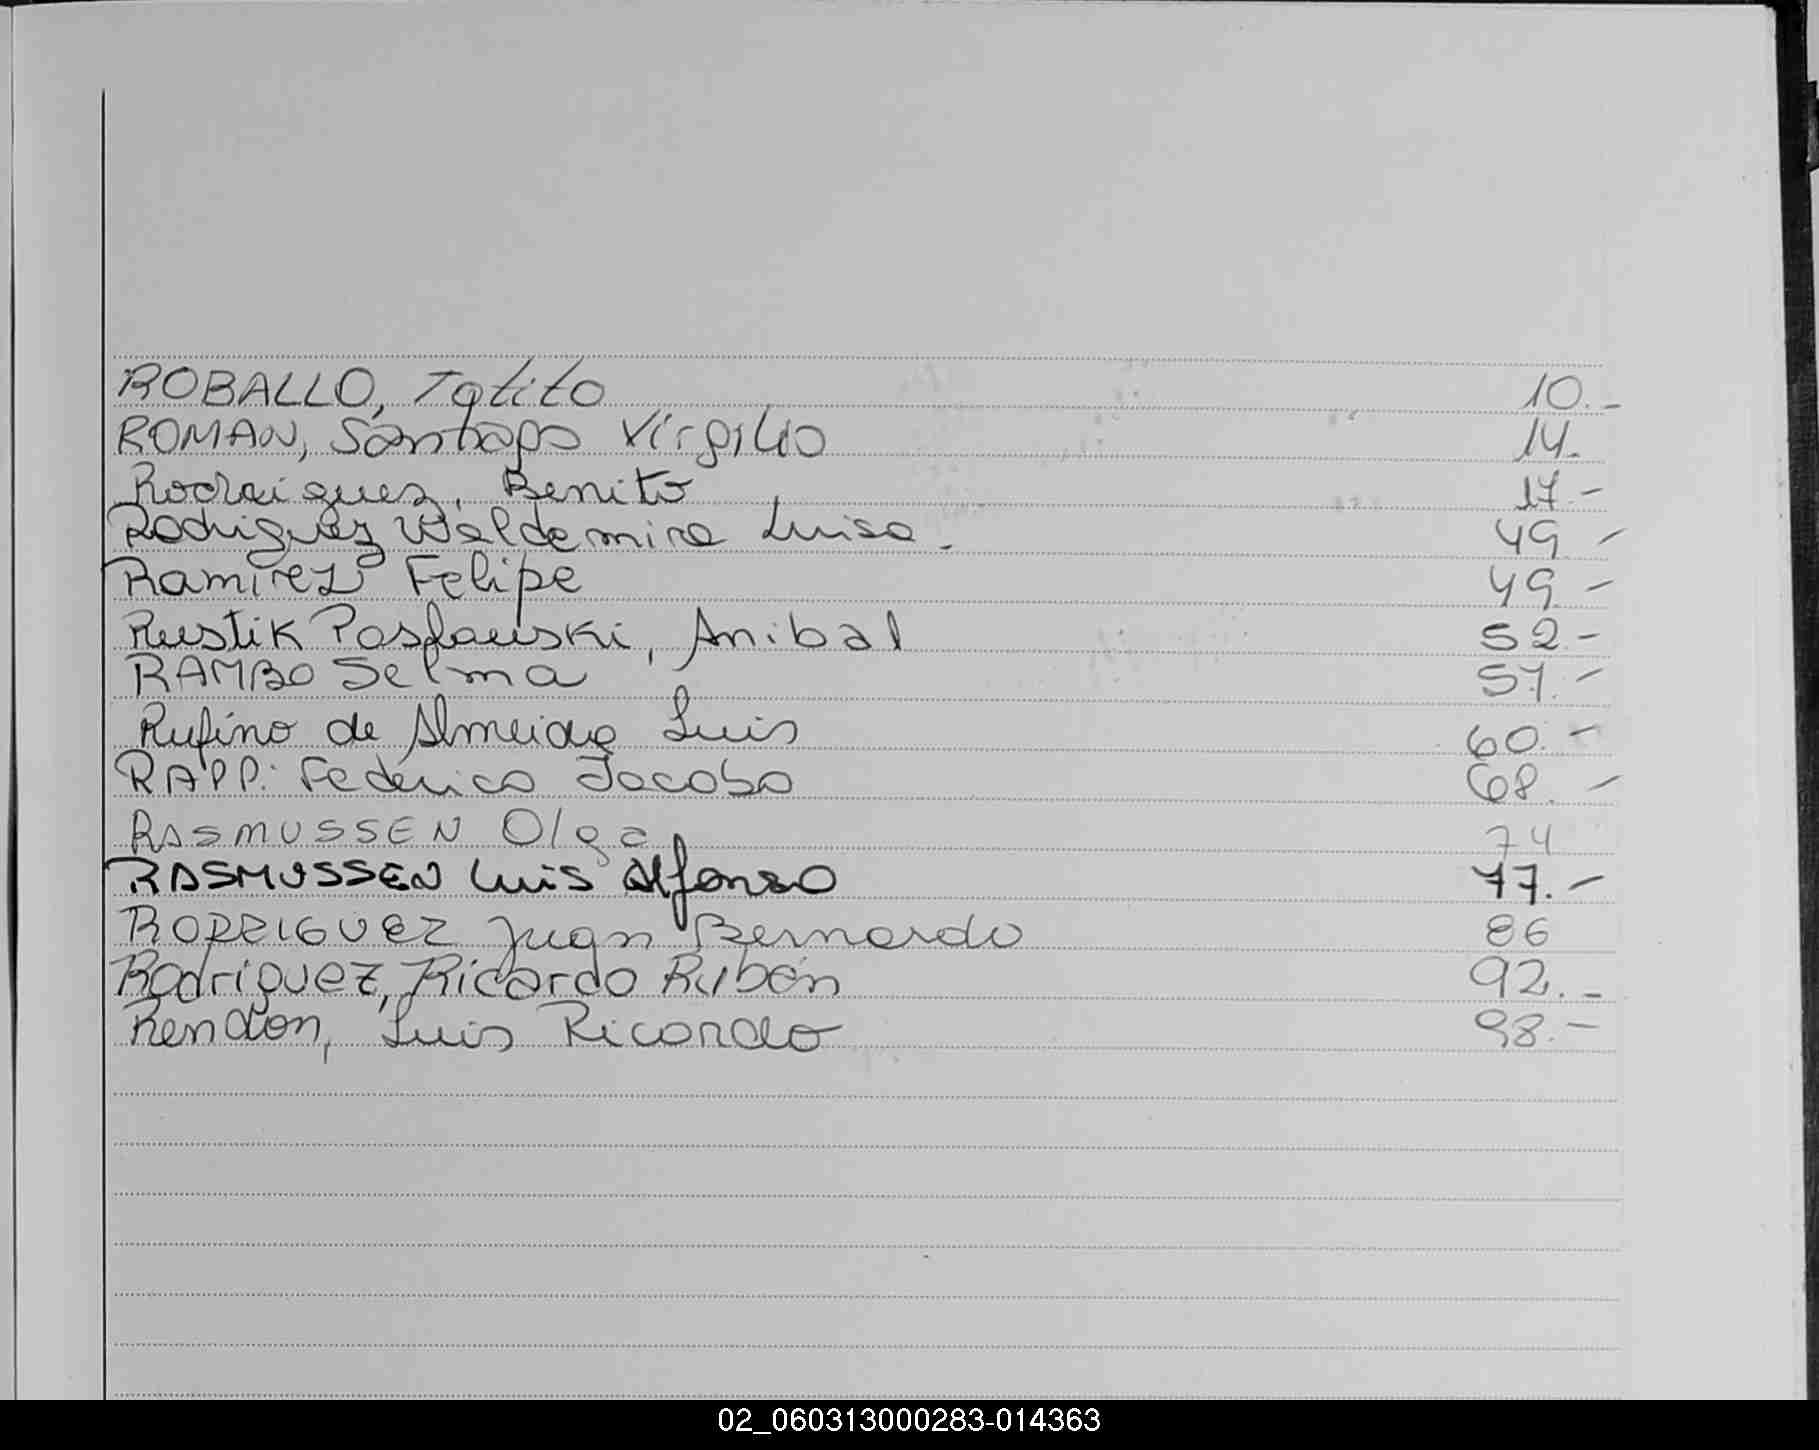 ROBALLO, Tatito 10.-
ROMAN, Santiago Virgilio 14.
Rodraiguez, Benito 17.-
Rodriguez Waldemira Luisa. 49.-
Ramirez Felipe 49.-
Rustik Poslauski, Anibal 52.-
RAMBO Selma 57.-
Rufino de Almeida Luis 60.-
RAPP. Federico Jacobo 68.-
RASMUSSEN Olga 74
RASMUSSEN Luis Alfonso 77.-
RODRIGUEZ Juan Bernardo 86
Rodriguez, Ricardo Rubén 92.-
Rendon, Luis Ricardo 98.-
02_060313000283-014363